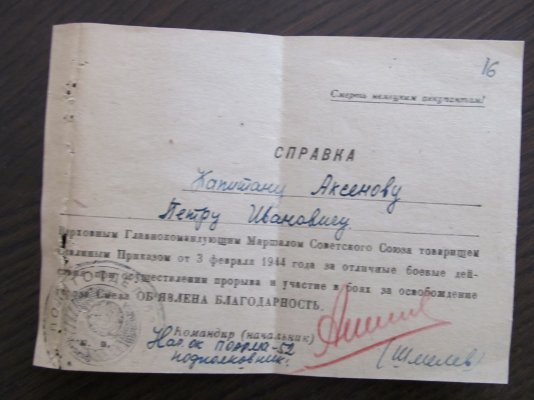 16
Смерть немецким оккупантам!
СПРАВКА
Капитану Аксенову
Петру Ивановичу
Верховным Главнокомандующим Маршалом Советского Союза товарищем
Сталиным Приказом от 3 февраля 1944 года за отличные боевые дей-
при осуществлении прорыва и участие в боях за освобождение
Смела ОБ'ЯВЛЕНА БЛАГОДАРНОСТЬ.
Командир (начальник)
подполковник
(Шмелев)